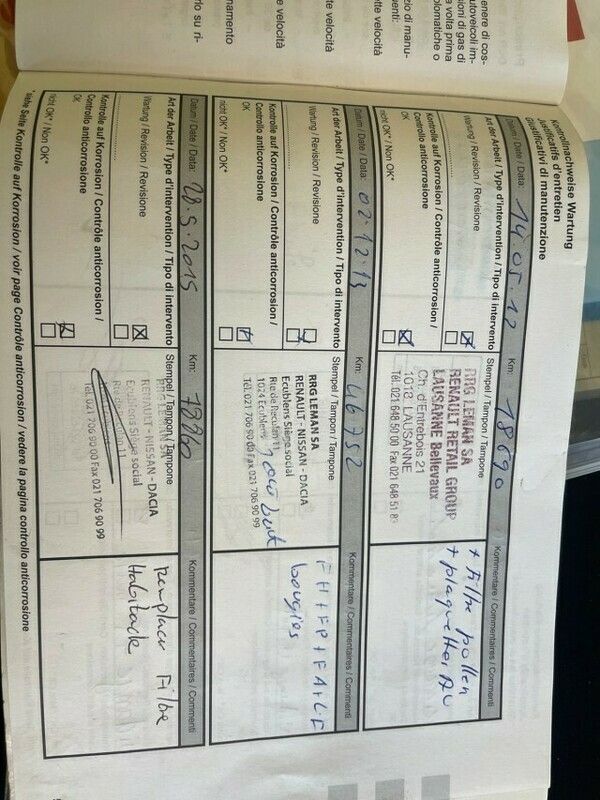 enere di cos-
utoveicoli im-
sioni di gas di
a volta prima
olomatiche o
zio di manu-
enti:
tte velocità
te velocità
e velocità
namento
rlo su ri-
Kontrollnachweise Wartung
Justificatifs d'entretien
Giustificativi di manutenzione
Datum / Date / Data: 14.05.12 Km: 18690 Kommentare / Commentaires / Commenti
Art der Arbeit / Type d'intervention / Tipo di intervento
Stempel / Tampon / Tampone
Wartung / Revision / Revisione
Kontrolle auf Korrosion / Contrôle anticorrosion /
Controllo anticorrosione:
OK
nicht OK* / Non OK*
RRG LEMAN SA
RENAULT RETAIL GROUP
LAUSANNE Bellevaux
Ch. d'Entrebois 21
1018 LAUSANNE
Tél. 021 648 50 00 Fax 021 648 51
+ Filtre pollen
+ plaquettes
Datum / Date / Data: 02.12.13 Km: 46752 Kommentare / Commentaires / Commenti
Art der Arbeit / Type d'intervention / Tipo di intervento
Stempel / Tampon / Tampone
Wartung / Revision / Revisione
Kontrolle auf Korrosion / Contrôle anticorrosion /
Controllo anticorrosione:
OK
nicht OK* / Non OK*
RRG LEMAN SA
RENAULT - NISSAN - DACIA
Ecublens Siège social
1024 Ecublens
Tél. 021 706 90 00 Fax 021 706 90 99
FH + FP + FA +
bougies
Datum / Date / Data: 28.5.2015 Km: Kommentare / Commentaires / Commenti
Art der Arbeit / Type d'intervention / Tipo di intervento
Stempel / Tampon / Tampone
Wartung / Revision / Revisione
Kontrolle auf Korrosion / Contrôle anticorrosion /
Controllo anticorrosione:
OK
nicht OK* / Non OK*
RRG LEMAN SA
RENAULT - NISSAN - DACIA
Ecublens Siège social
Tél. 021 706 90 00 Fax 021 706 90 99
remplacer Filtre
Habitacle
*siehe Seite Kontrolle auf Korrosion / voir page Contrôle anticorrosion / vedere la pagina controllo anticorrosione